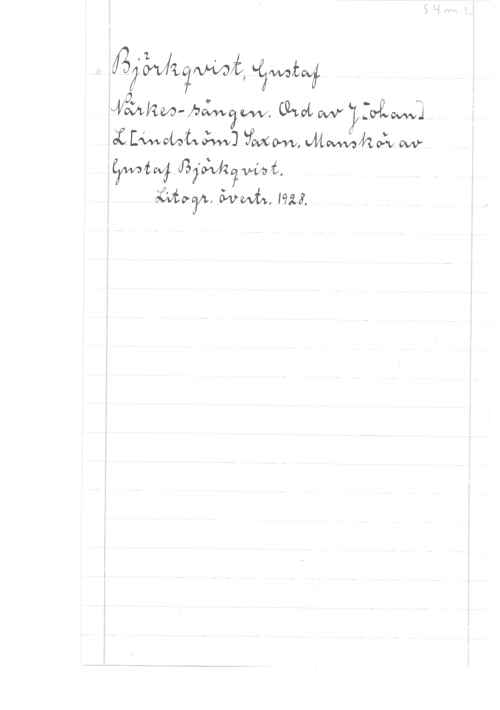 S 4 m :.
Björkqvist, Gustaf
Närkes-sången. Ord av J[ohan]
L[indström] Saxon. Manskör av
Gustaf Björkqvist.
Litogr. övertr. 1928.